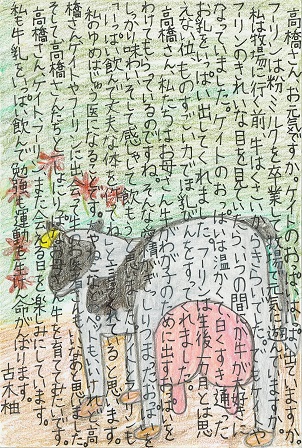 高橋さん、お元気ですか。ケイトのおっぱいはよく出ていますか。
フーリンは粉ミルクを卒業して牧場で元気に遊んでいますか。
私は牧場に行く前、牛はくさいからきらいでした。でも、ケイトや
フーリンのきれいな目を見ていたら、いつの間にか牛が大好きに
なっていました。ケイトのおっぱいは温かくて白くすき通った
お乳をいっぱい出してくれました。フーリンは生後一カ月とは思
えない位ものすごい力でほ乳びんをすってくれました。
高橋さん、私たちはお母さん牛がわが子のために出すお乳を
わけてもらっているのですね。そんな愛情がぎっしりつまったお乳を
しっかり味わい、そして感しゃして飲もうと思います。フーリンも
「いっぱい飲んで丈夫な体になってね」と言ってくれると思います。
私のゆめはじゅう医になることです。犬やねこなどのペットもいいけれど、高
橋さん、ケイトやフーリンに出会って牛のお医者さんもいいなあと思いました。
そして高橋さんたちといっしょにりっぱなお母さん牛を育てたいです。
高橋さん、ケイト、フーリン、また会える日を楽しみにしています。
私も牛乳をいっぱい飲んで勉強も運動も一生けん命がんばります。
古木柚